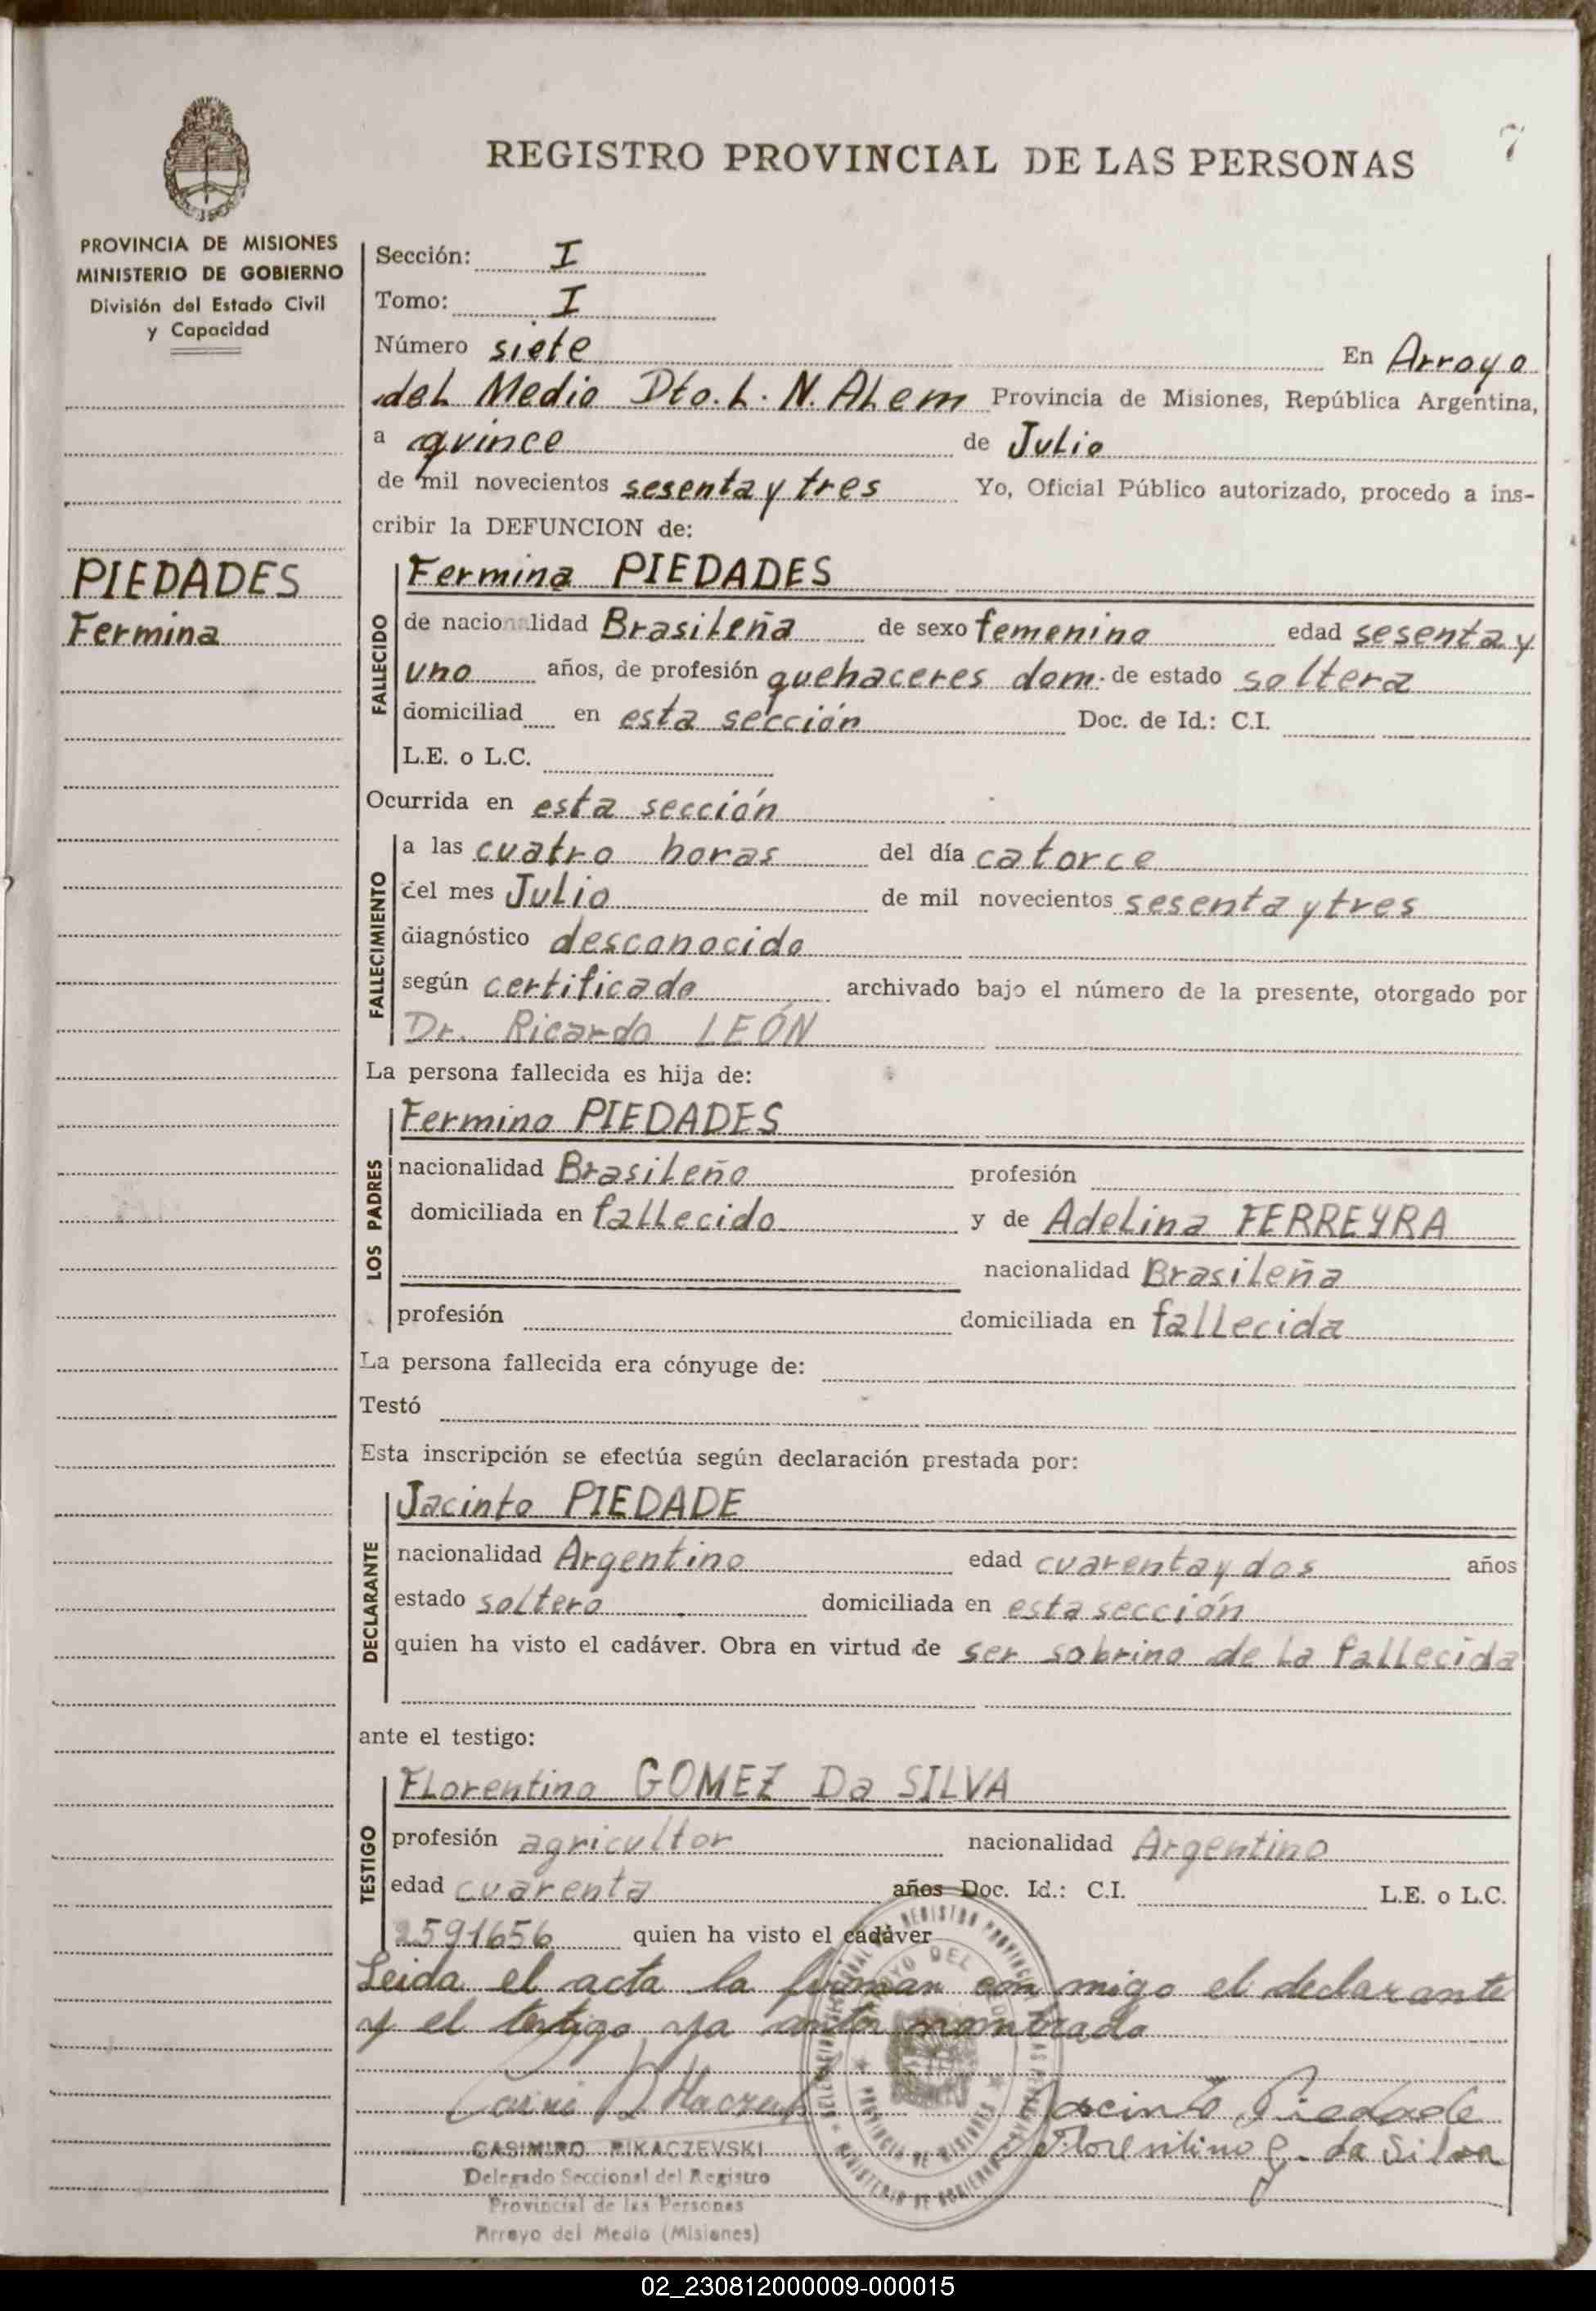 7
REGISTRO PROVINCIAL DE LAS PERSONAS
PROVINCIA DE MISIONES
MINISTERIO DE GOBIERNO
División del Estado Civil
y Capacidad
PIEDADES
Fermina
Sección: I
Tomo: I
Número siete En Arroyo
del Medio Dto. L. N. ALem Provincia de Misiones, República Argentina,
a quince de Julio
de mil novecientos sesenta y tres Yo, Oficial Público autorizado, procedo a ins-
cribir la DEFUNCION de:
FALLECIDO
Fermina PIEDADES
de nacionalidad Brasileña de sexo femenino edad sesenta y
uno años, de profesión quehaceres dom. de estado soltera
domiciliad en esta sección Doc. de Id.: C.I.
L.E. o L.C.
Ocurrida en esta sección
FALLECIMIENTO
a las cuatro horas del día catorce
del mes Julio de mil novecientos sesenta y tres
diagnóstico desconocido
según certificado archivado bajo el número de la presente, otorgado por
Dr. Ricardo LEÓN
La persona fallecida es hija de:
LOS PADRES
Fermino PIEDADES
nacionalidad Brasileño profesión
domiciliada en fallecido y de Adelina FERREYRA
nacionalidad Brasileña
profesión domiciliada en fallecida
La persona fallecida era cónyuge de:
Testó
Esta inscripción se efectúa según declaración prestada por:
DECLARANTE
Jacinto PIEDADE
nacionalidad Argentino edad cuarenta y dos años
estado soltero domiciliada en esta sección
quien ha visto el cadáver. Obra en virtud de ser sobrino de la fallecida
ante el testigo:
TESTIGO
Florentino GOMEZ Da SILVA
profesión agricultor nacionalidad Argentino
edad cuarenta años Doc. Id.: C.I. L.E. o L.C.
2591656 quien ha visto el cadáver
Leida el acta la firman con migo el declarante
y el testigo ya antes nombrado
Jacinto Piedade
Florentino G. da Silva
CASIMIRO PIKACZEVSKI
Delegado Seccional del Registro
Provincial de las Personas
Arroyo del Medio (Misiones)
PROVINCIA DE MISIONES
02_230812000009-000015